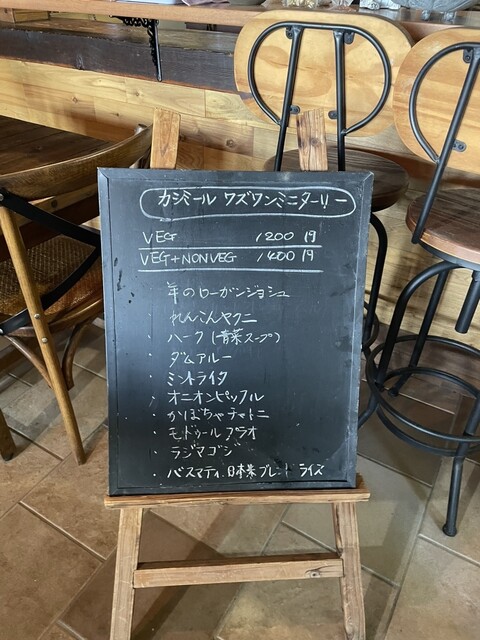 カシミール ワズワンミニターリー
VEG 1200 円
VEG+NONVEG 1400 円
羊のローガンジョシュ
・ れんこんヤクニ
・ ハーク (青菜スープ)
・ ダムアルー
・ ミントライタ
・ オニオンピックル
・ かぼちゃチャトニ
・ モドゥールプラオ
・ ラジマゴジ
・ バスマティ、日本米ブレンドライス